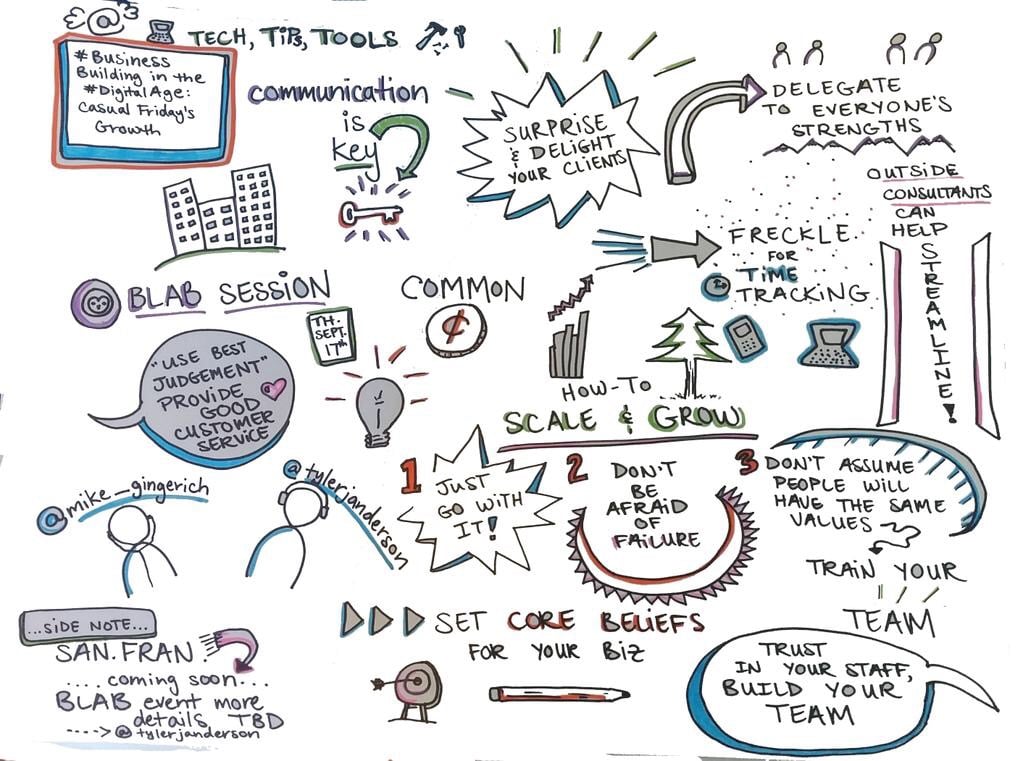 TECH, TIPS, TOOLS
@
# Business
Building in the
#Digital Age:
Casual Friday's
Growth
communication
is
key
SURPRISE
& DELIGHT
YOUR CLIENTS
DELEGATE
TO EVERYONE'S
STRENGTHS
OUTSIDE
CONSULTANTS
CAN
HELP
STREAMLINE!
FRECKLE
FOR
TIME
TRACKING
BLAB SESSION
TH.
SEPT.
17th
COMMON
¢
"USE BEST
JUDGEMENT"
PROVIDE
GOOD
CUSTOMER
SERVICE
HOW-TO
SCALE & GROW
1
JUST
GO WITH
IT!
2
DON'T
BE
AFRAID
OF
FAILURE
3
DON'T ASSUME
PEOPLE WILL
HAVE THE SAME
VALUES
TRAIN YOUR
TEAM
@mike_gingerich
@tylerjanderson
...SIDE NOTE...
SAN. FRAN.
....coming soon...
BLAB event more
details, TBD
----> @tylerjanderson
SET CORE BELIEFS
FOR YOUR BIZ
TRUST
IN YOUR STAFF,
BUILD YOUR
TEAM